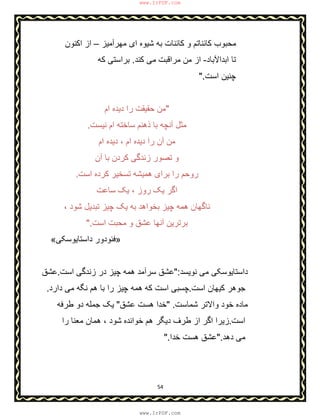 www.IrPDF.com
محبوب کائناتم و کائنات به شیوه ای مهرآمیز – از اکنون
تا ابدالآباد- از من مراقبت می کند. براستی که
چنین است."
"من حقیقت را دیده ام
مثل آنچه با ذهنم ساخته ام نیست.
من آن را دیده ام ، دیده ام
و تصور زندگی کردن با آن
روحم را برای همیشه تسخیر کرده است.
اگر یک روز ، یک ساعت
ناگهان همه چیز بخواهد به یک چیز تبدیل شود ،
برترین آنها عشق و محبت است."
«فئودور داستایوسکی»
داستایوسکی می نویسد:"عشق سرآمد همه چیز در زندگی است.عشق
جوهر کیهان است.چسبی است که همه چیز را با هم نگه می دارد.
ماده خود والاتر شماست. "خدا هست عشق" یک جمله دو طرفه
است.زیرا اگر از طرف دیگر هم خوانده شود ، همان معنا را
می دهد."عشق هست خدا".
54
www.IrPDF.com